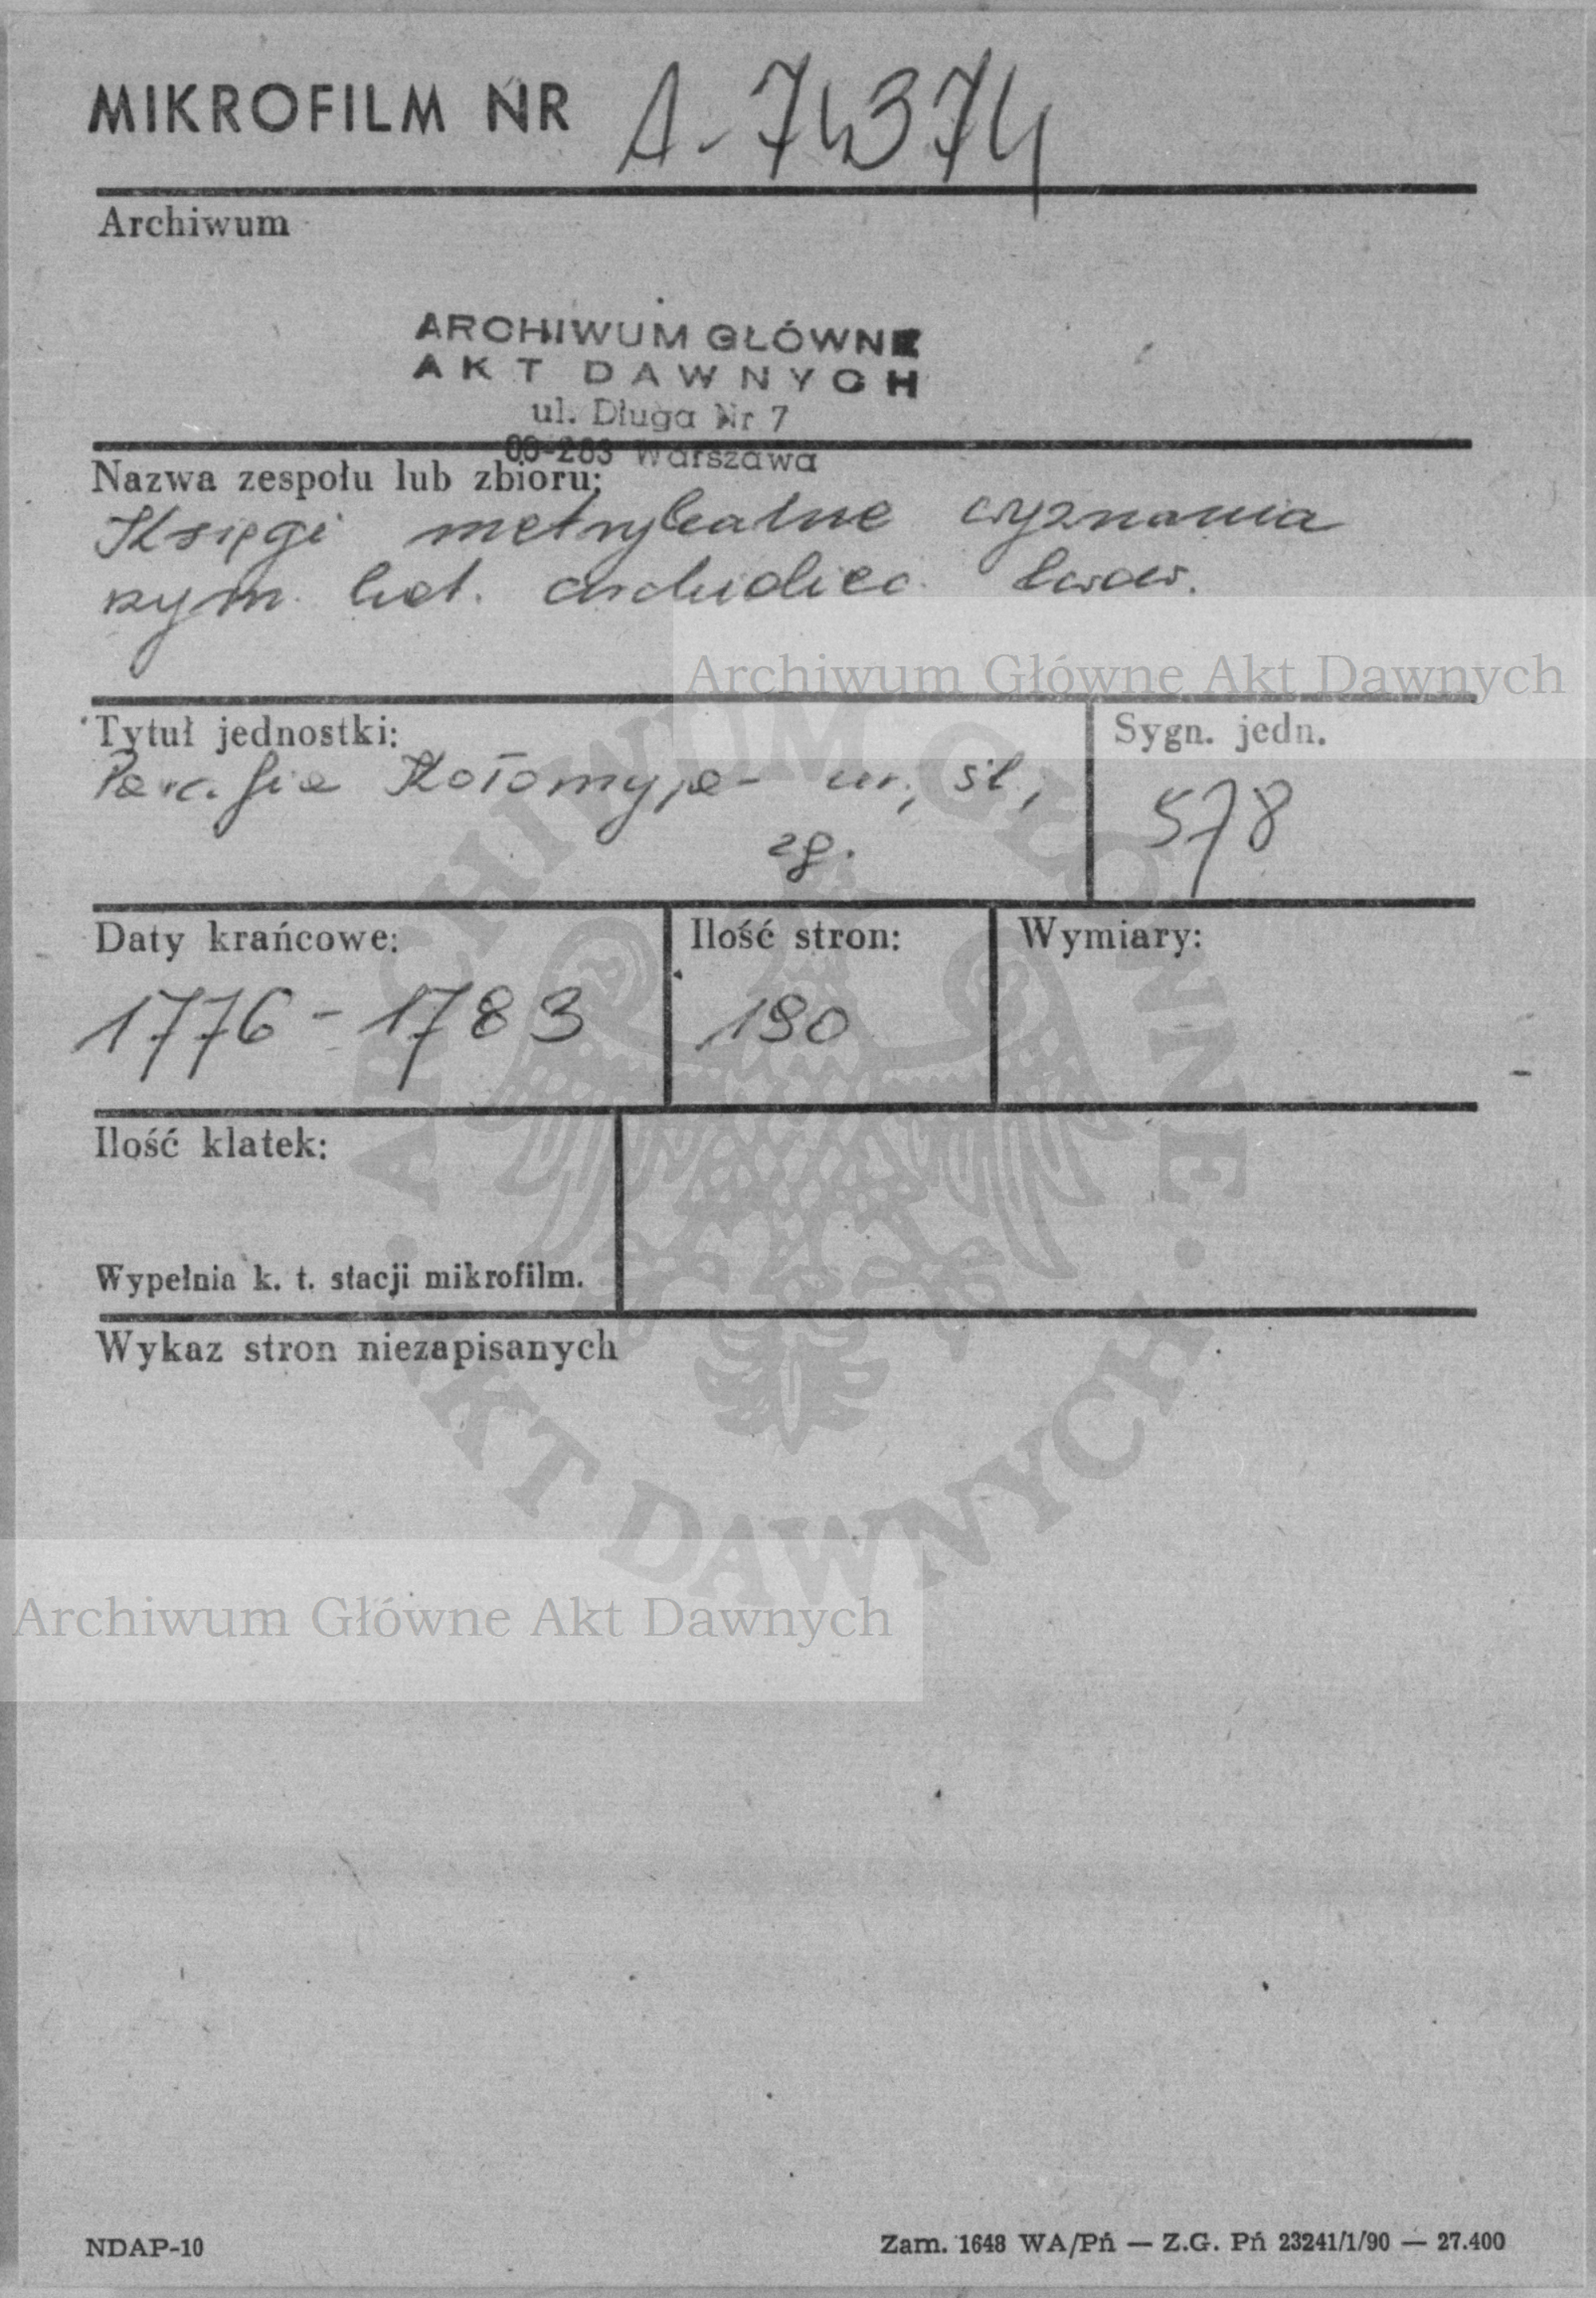 MIKROFILM NR A-74374
Archiwum
ARCHIWUM GŁÓWNE
AKT DAWNYCH
ul. Długa Nr 7
00-263 Warszawa
Nazwa zespołu lub zbioru:
Księgi metrykalne wyznania
rzym. kat. archidiec. lwow.
Archiwum Główne Akt Dawnych
Tytuł jednostki:
Sygn. jedn.
Parafia Kołomyja - ur., śl.,
zg.
578
Daty krańcowe:
Ilość stron:
Wymiary:
1776 - 1783
190
Ilość klatek:
Wypełnia k. t. stacji mikrofilm.
Wykaz stron niezapisanych
ARCHIWUM GŁÓWNE
· AKT DAWNYCH ·
Archiwum Główne Akt Dawnych
NDAP-10
Zam. 1648 WA/Pń — Z.G. Pń 23241/1/90 — 27.400